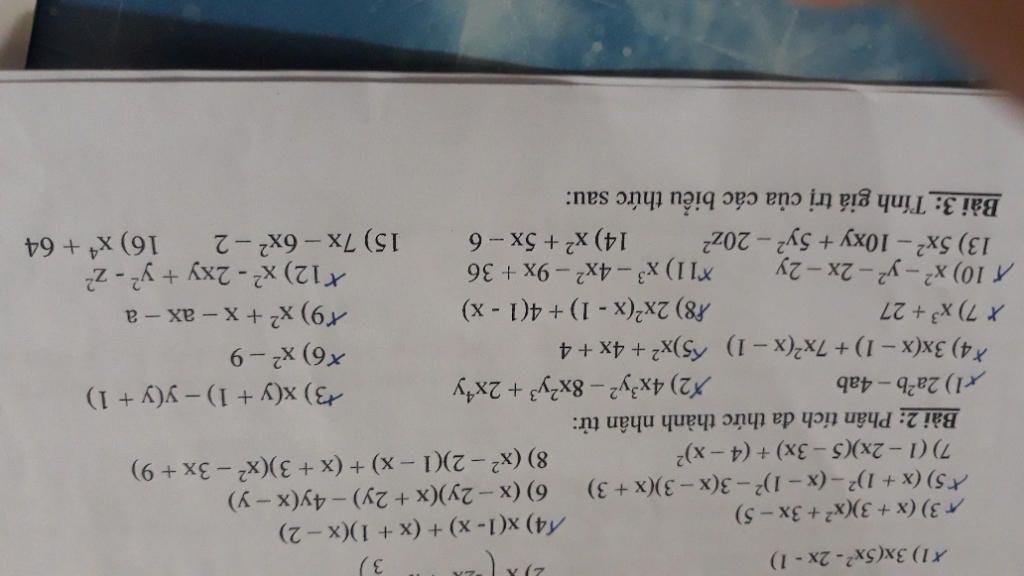 1) 3x(5x² - 2x - 1)
3) (x + 3)(x² + 3x – 5) 4) x(1- x) + (x + 1)(x – 2)
5) (x + 1)² – (x – 1)² – 3(x – 3)(x + 3) 6) (x – 2y)(x + 2y) – 4y(x – y)
7) (1 – 2x)(5 – 3x) + (4 – x)² 8) (x² – 2)(1 – x) + (x + 3)(x² – 3x + 9)
Bài 2: Phân tích đa thức thành nhân tử:
1) 2a²b – 4ab 2) 4x³y² – 8x²y³ + 2x⁴y 3) x(y + 1) – y(y + 1)
4) 3x(x – 1) + 7x²(x – 1) 5)x² + 4x + 4 6) x² – 9
7) x³ + 27 8) 2x²(x - 1) + 4(1 - x) 9) x² + x – ax – a
10) x² – y² – 2x – 2y 11) x³ – 4x² – 9x + 36 12) x² - 2xy + y² - z²
13) 5x² – 10xy + 5y² – 20z² 14) x² + 5x – 6 15) 7x – 6x² – 2 16) x⁴ + 64
Bài 3: Tính giá trị của các biểu thức sau: